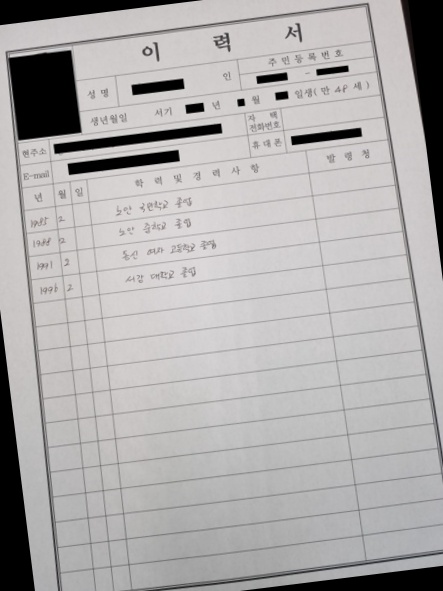 이 력 서
성 명 인 주 민 등 록 번 호
-
생년월일 서기 년 월 일생( 만 48 세 )
현주소 자 택 전화번호
E-mail 휴 대 폰
년 월 일 학 력 및 경 력 사 항 발 령 청
1985 2 노안 국민학교 졸업
1988 2 노안 중학교 졸업
1991 2 동신 여자 고등학교 졸업
1996 2 서강 대학교 졸업